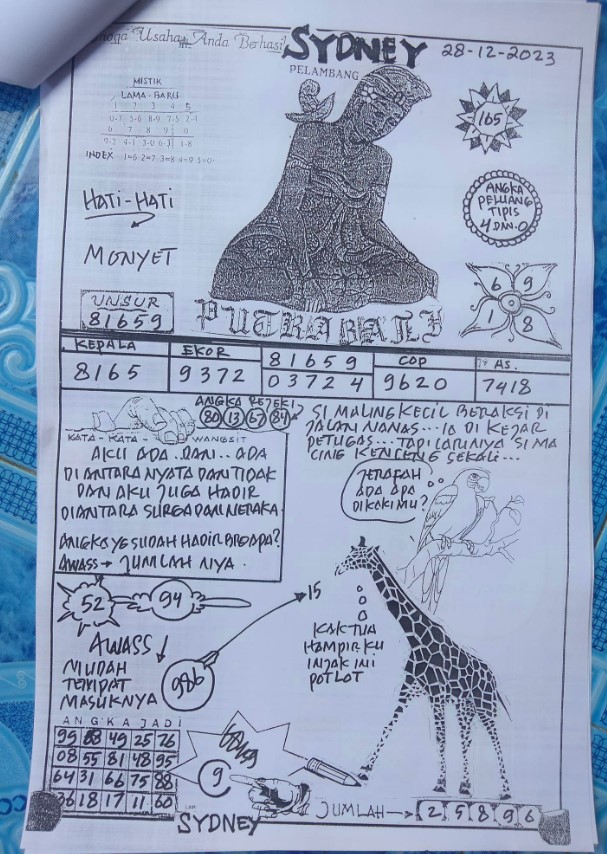 Usaha Anda Berhasil
SYDNEY
28-12-2023
PELAMBANG
MISTIK
LAMA - BARU
1 2 3 4 5
0-7 5-6 8-9 7-5 2-1
6 7 8 9 0
INDEX 1=6 2=7 3=8 4=9 5=0
165
HATI-HATI
ANGKA
PELUANG
TIPIS
4 DAN 0
MONYET
6 9
1 8
UNSUR
81659
PUTRA BALI
KEPALA EKOR 81659 COP AS.
8165 9372 03724 9620 7418
ANGKA REJEKI
80 13 67 84
KATA - KATA - WANGSIT
AKU ADA..DAN..ADA
DIANTARA NYATA DAN TIDAK
DAN AKU JUGA HADIR
DIANTARA SURGA DAN NERAKA
ANGKA YG SUDAH HADIR BERAPA?
AWASS → JUMLAH NYA.
SI MALING KECIL BERAKSI DI
JALAN NANAS...IA DI KEJAR
PETUGAS...TAPI LARINYA SI MA
LING KENCENG SEKALI...
JERAPAH
ADA APA
DIKAKIMU?
52 94
15
AWASS ↓
MUDAH
TEMPAT
MASUKNYA
986
KAKTUA
HAMPIR KU
INJAK INI
POTLOT
ANGKA JADI
99 68 49 25 76
08 55 81 48 95
64 31 66 75 88
36 18 17 11 60
9
SYDNEY
JUMLAH → 2 5 8 9 6